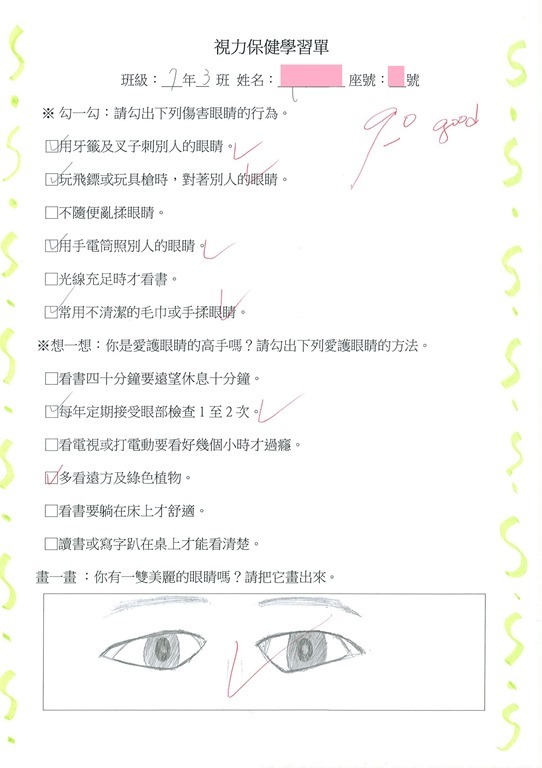 視力保健學習單
班級：7年3班 姓名： 座號：號
※ 勾一勾：請勾出下列傷害眼睛的行為。
90 good
☑用牙籤及叉子刺別人的眼睛。
☑玩飛鏢或玩具槍時，對著別人的眼睛。
□不隨便亂揉眼睛。
☑用手電筒照別人的眼睛。
□光線充足時才看書。
☑常用不清潔的毛巾或手揉眼睛。
※想一想：你是愛護眼睛的高手嗎？請勾出下列愛護眼睛的方法。
□看書四十分鐘要遠望休息十分鐘。
☑每年定期接受眼部檢查 1 至 2 次。
□看電視或打電動要看好幾個小時才過癮。
☑多看遠方及綠色植物。
□看書要躺在床上才舒適。
□讀書或寫字趴在桌上才能看清楚。
畫一畫 ：你有一雙美麗的眼睛嗎？請把它畫出來。